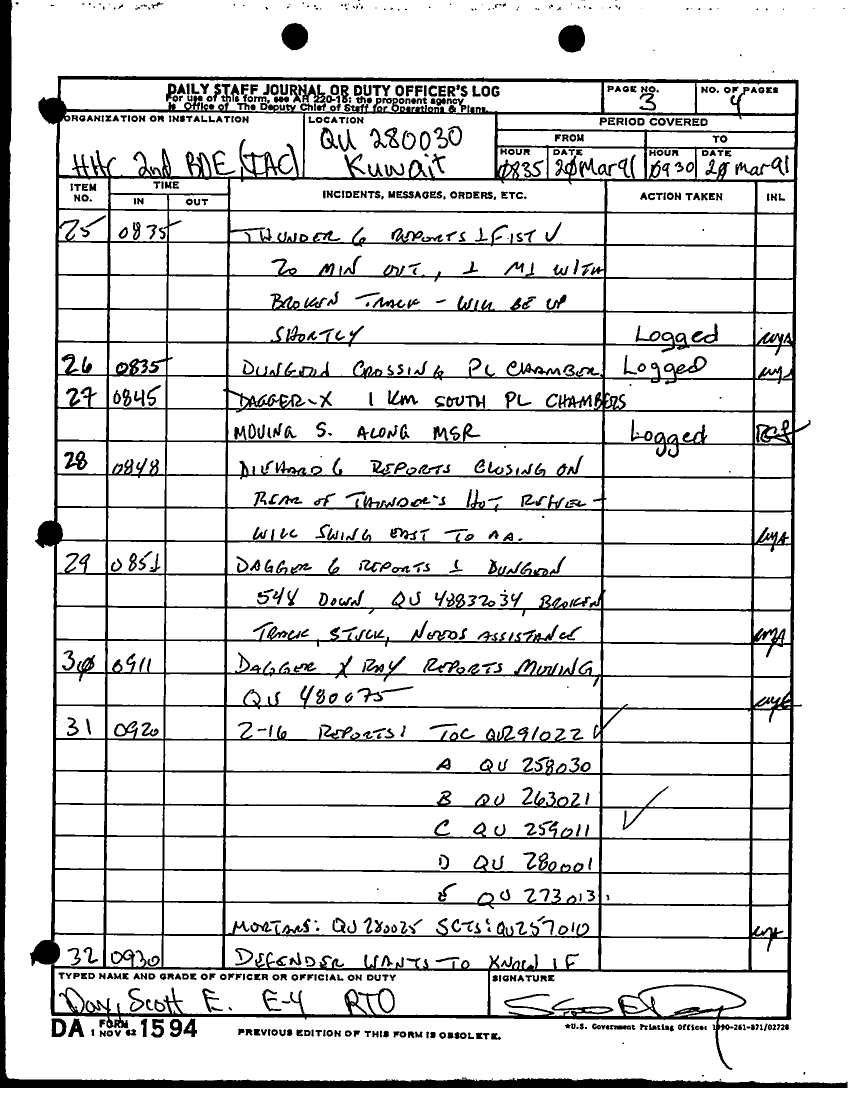 DAILY STAFF JOURNAL OR DUTY OFFICER'S LOG
For use of this form, see AR 220-15; the proponent agency
is Office of The Deputy Chief of Staff for Operations & Plans.
PAGE NO.
3
NO. OF PAGES
4
ORGANIZATION OR INSTALLATION
HHC 2nd BDE (TAC)
LOCATION
QU 280030
Kuwait
PERIOD COVERED
FROM
TO
HOUR
0835
DATE
Mar 91
HOUR
0930
DATE
Mar 91
ITEM NO.
TIME
IN
OUT
INCIDENTS, MESSAGES, ORDERS, ETC.
ACTION TAKEN
INL
25 0835 THUNDER 6 REPORTS 1 FIST V
20 MIN OUT, 1 M1 WITH
BROKEN TRACK - WILL BE UP
SHORTLY Logged
26 0835 DUNGEON CROSSING PL CHAMBER Logged
27 0845 DAGGER-X 1 KM SOUTH PL CHAMBERS
MOVING S. ALONG MSR Logged
28 0848 DIEHARD 6 REPORTS CLOSING ON
REAR OF THUNDER'S HOT REFUEL -
WILL SWING EAST TO AA.
29 0851 DAGGER 6 REPORTS 1 DUNGEON
548 DOWN, QU 48832034, BROKEN
TRACK, STUCK, NEEDS ASSISTANCE
30 0911 DAGGER X RAY REPORTS MOVING,
QU 480075
31 0920 2-16 REPORTS: TOC QU291022
A QU 258030
B QU 263021
C QU 259011
D QU 280001
E QU 273013
MORTARS: QU 280025 SCTS: QU257010
32 0930 DEFENDER WANTS TO KNOW IF
TYPED NAME AND GRADE OF OFFICER OR OFFICIAL ON DUTY
Day, Scott E. E-4 RTO
SIGNATURE
DA FORM 1 NOV 62 1594
PREVIOUS EDITION OF THIS FORM IS OBSOLETE.
*U.S. Government Printing Office: 1990-261-871/02728